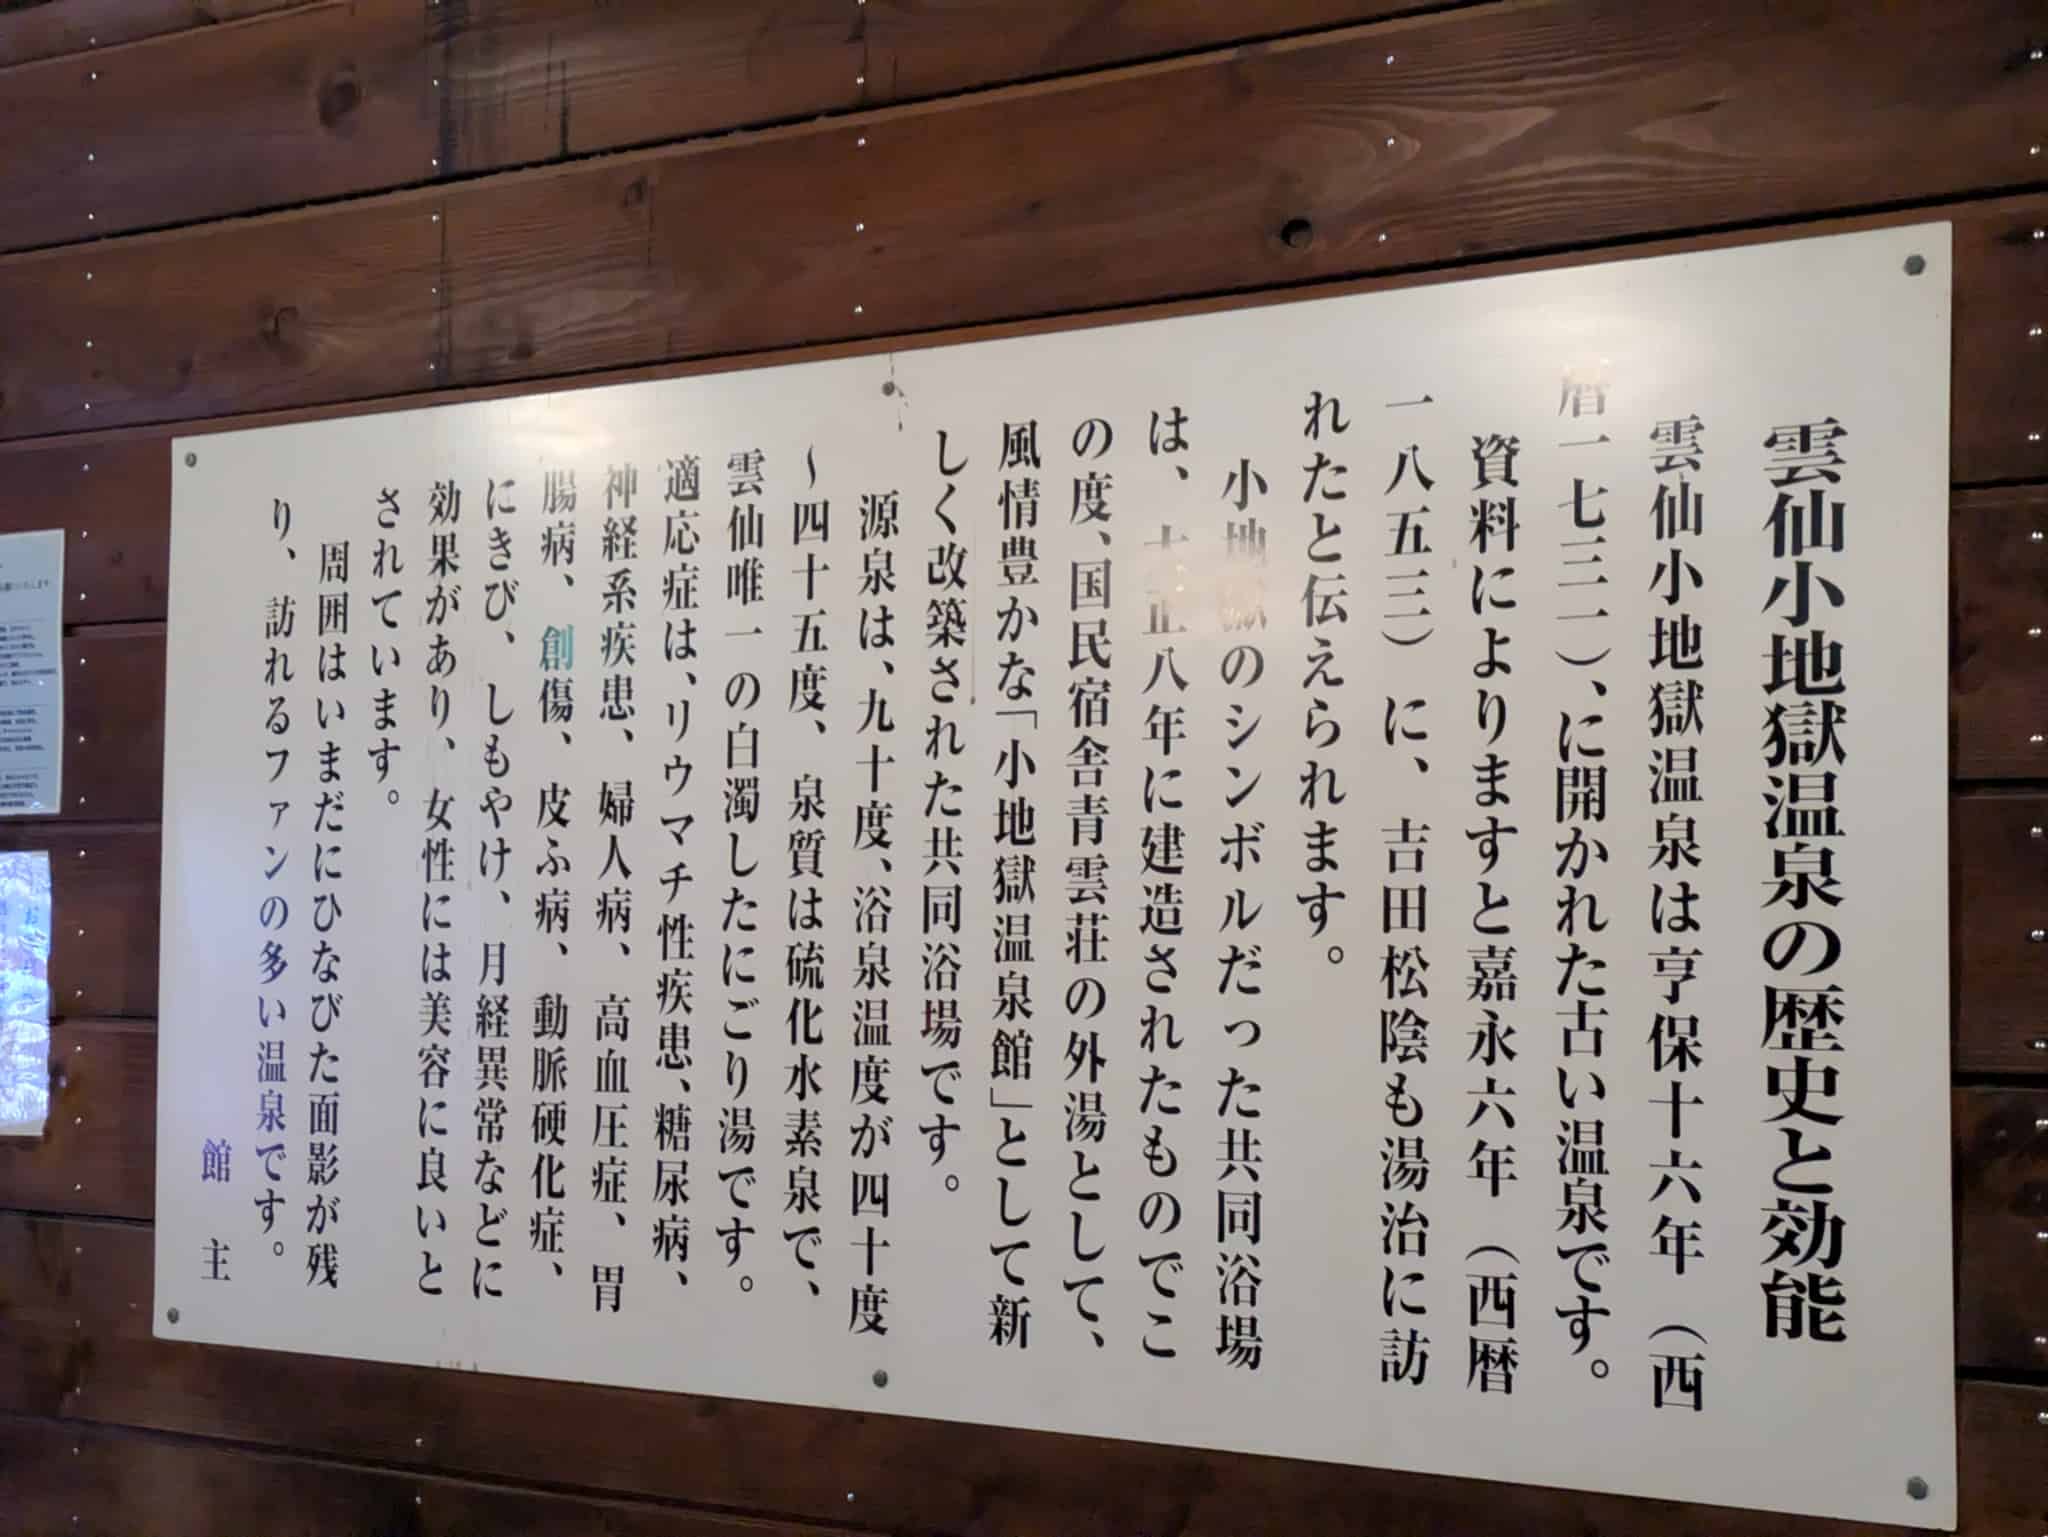 雲仙小地獄温泉の歴史と効能
雲仙小地獄温泉は亨保十六年（西
暦一七三一）、に開かれた古い温泉です。
資料によりますと嘉永六年（西暦
一八五三）に、吉田松陰も湯治に訪
れたと伝えられます。
小地獄のシンボルだった共同浴場
は、大正八年に建造されたものでこ
の度、国民宿舎青雲荘の外湯として、
風情豊かな「小地獄温泉館」として新
しく改築された共同浴場です。
源泉は、九十度、浴泉温度が四十度
〜四十五度、泉質は硫化水素泉で、
雲仙唯一の白濁したにごり湯です。
適応症は、リウマチ性疾患、糖尿病、
神経系疾患、婦人病、高血圧症、胃
腸病、創傷、皮ふ病、動脈硬化症、
にきび、しもやけ、月経異常などに
効果があり、女性には美容に良いと
されています。
周囲はいまだにひなびた面影が残
り、訪れるファンの多い温泉です。
館主